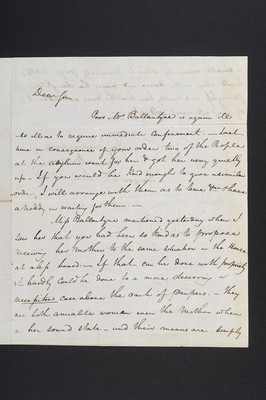 Dear Sir
Poor Mrs Ballantyne is again ill
so ill as to require immediate confinement - Last
time in consequence of your order two of the People
at the asylum went for her & got her very quietly
up - If you would be kind enough to give a similar
order I will arrange with them as to time & have
a ready in waiting for them -
Miss Ballantyne mentioned yesterday when I
saw her that you had been so kind as to propose
receiving her mother to the same situation in the House
at less board - If that can be done with propriety
it hardly could be done to a more deserving or
necessitous case above the rank of paupers - They
are both amiable women even the mother when
in her sound state - and their means are simply